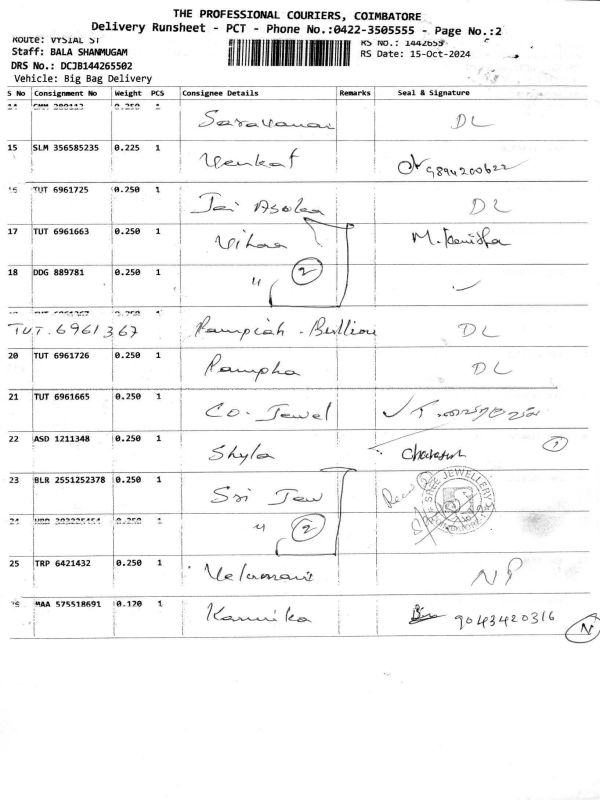 THE PROFESSIONAL COURIERS, COIMBATORE
Delivery Runsheet - PCT - Phone No.:0422-3505555 - Page No.:2
Route: VYSIAL ST
RS No.: 1442655
Staff: BALA SHANMUGAM
RS Date: 15-Oct-2024
DRS No.: DCJB144265502
Vehicle: Big Bag Delivery
S No Consignment No Weight PCS Consignee Details Remarks Seal & Signature
14 0.250 1 Saravanan DL
15 SLM 356585235 0.225 1 Venkat 9894200622
16 TUT 6961725 0.250 1 Jai Asoka DL
17 TUT 6961663 0.250 1 Vihaa M.
18 DDG 889781 0.250 1 " 2
TUT. 6961367 - Bullion DL
20 TUT 6961726 0.250 1 Pampha DL
21 TUT 6961665 0.250 1 CO. Jewel
22 ASD 1211348 0.250 1 Shyla 1
23 BLR 2551252378 0.250 1 Sri Jew 2 SREE JEWELLERY
24 0.250 1 " 2
25 TRP 6421432 0.250 1 Velumani NP
26 MAA 575518691 0.120 1 Kannika 9043420316
N